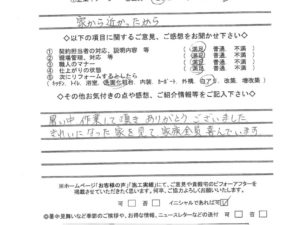 家から近かったから
◇以下の項目に関するご意見、ご感想をお聞かせ下さい◇
① 契約担当者の対応、説明内容 等 (満足 普通 不満)
② 現場管理、対応 等 (満足 普通 不満)
③ 職人マナー (満足 普通 不満)
④ 仕上がりの状態 (満足 普通 不満)
⑤ 次にリフォームするとしたら
(キッチン、トイレ、浴室、 内装、カーポート、外構、白アリ、改築、増改築)
◇その他お気付きの点や感想、ご紹介情報等をご記入下さい◇
暑い中 作業して頂き ありがとうございました
きれいになった家を見て 家族全員 喜んでいます
※ホームページ「お客様の声」「施工実績」にて、ご意見や貴邸宅のビフォーアフターを
掲載させていただきたく思います。何卒、ご協力よろしくお願いいたします。
可 □ 否 □ イニシャルであれば可 ☑
◎暑中見舞いなど季節のご挨拶や、お得な情報、ニュースレターなどの送付 可 否